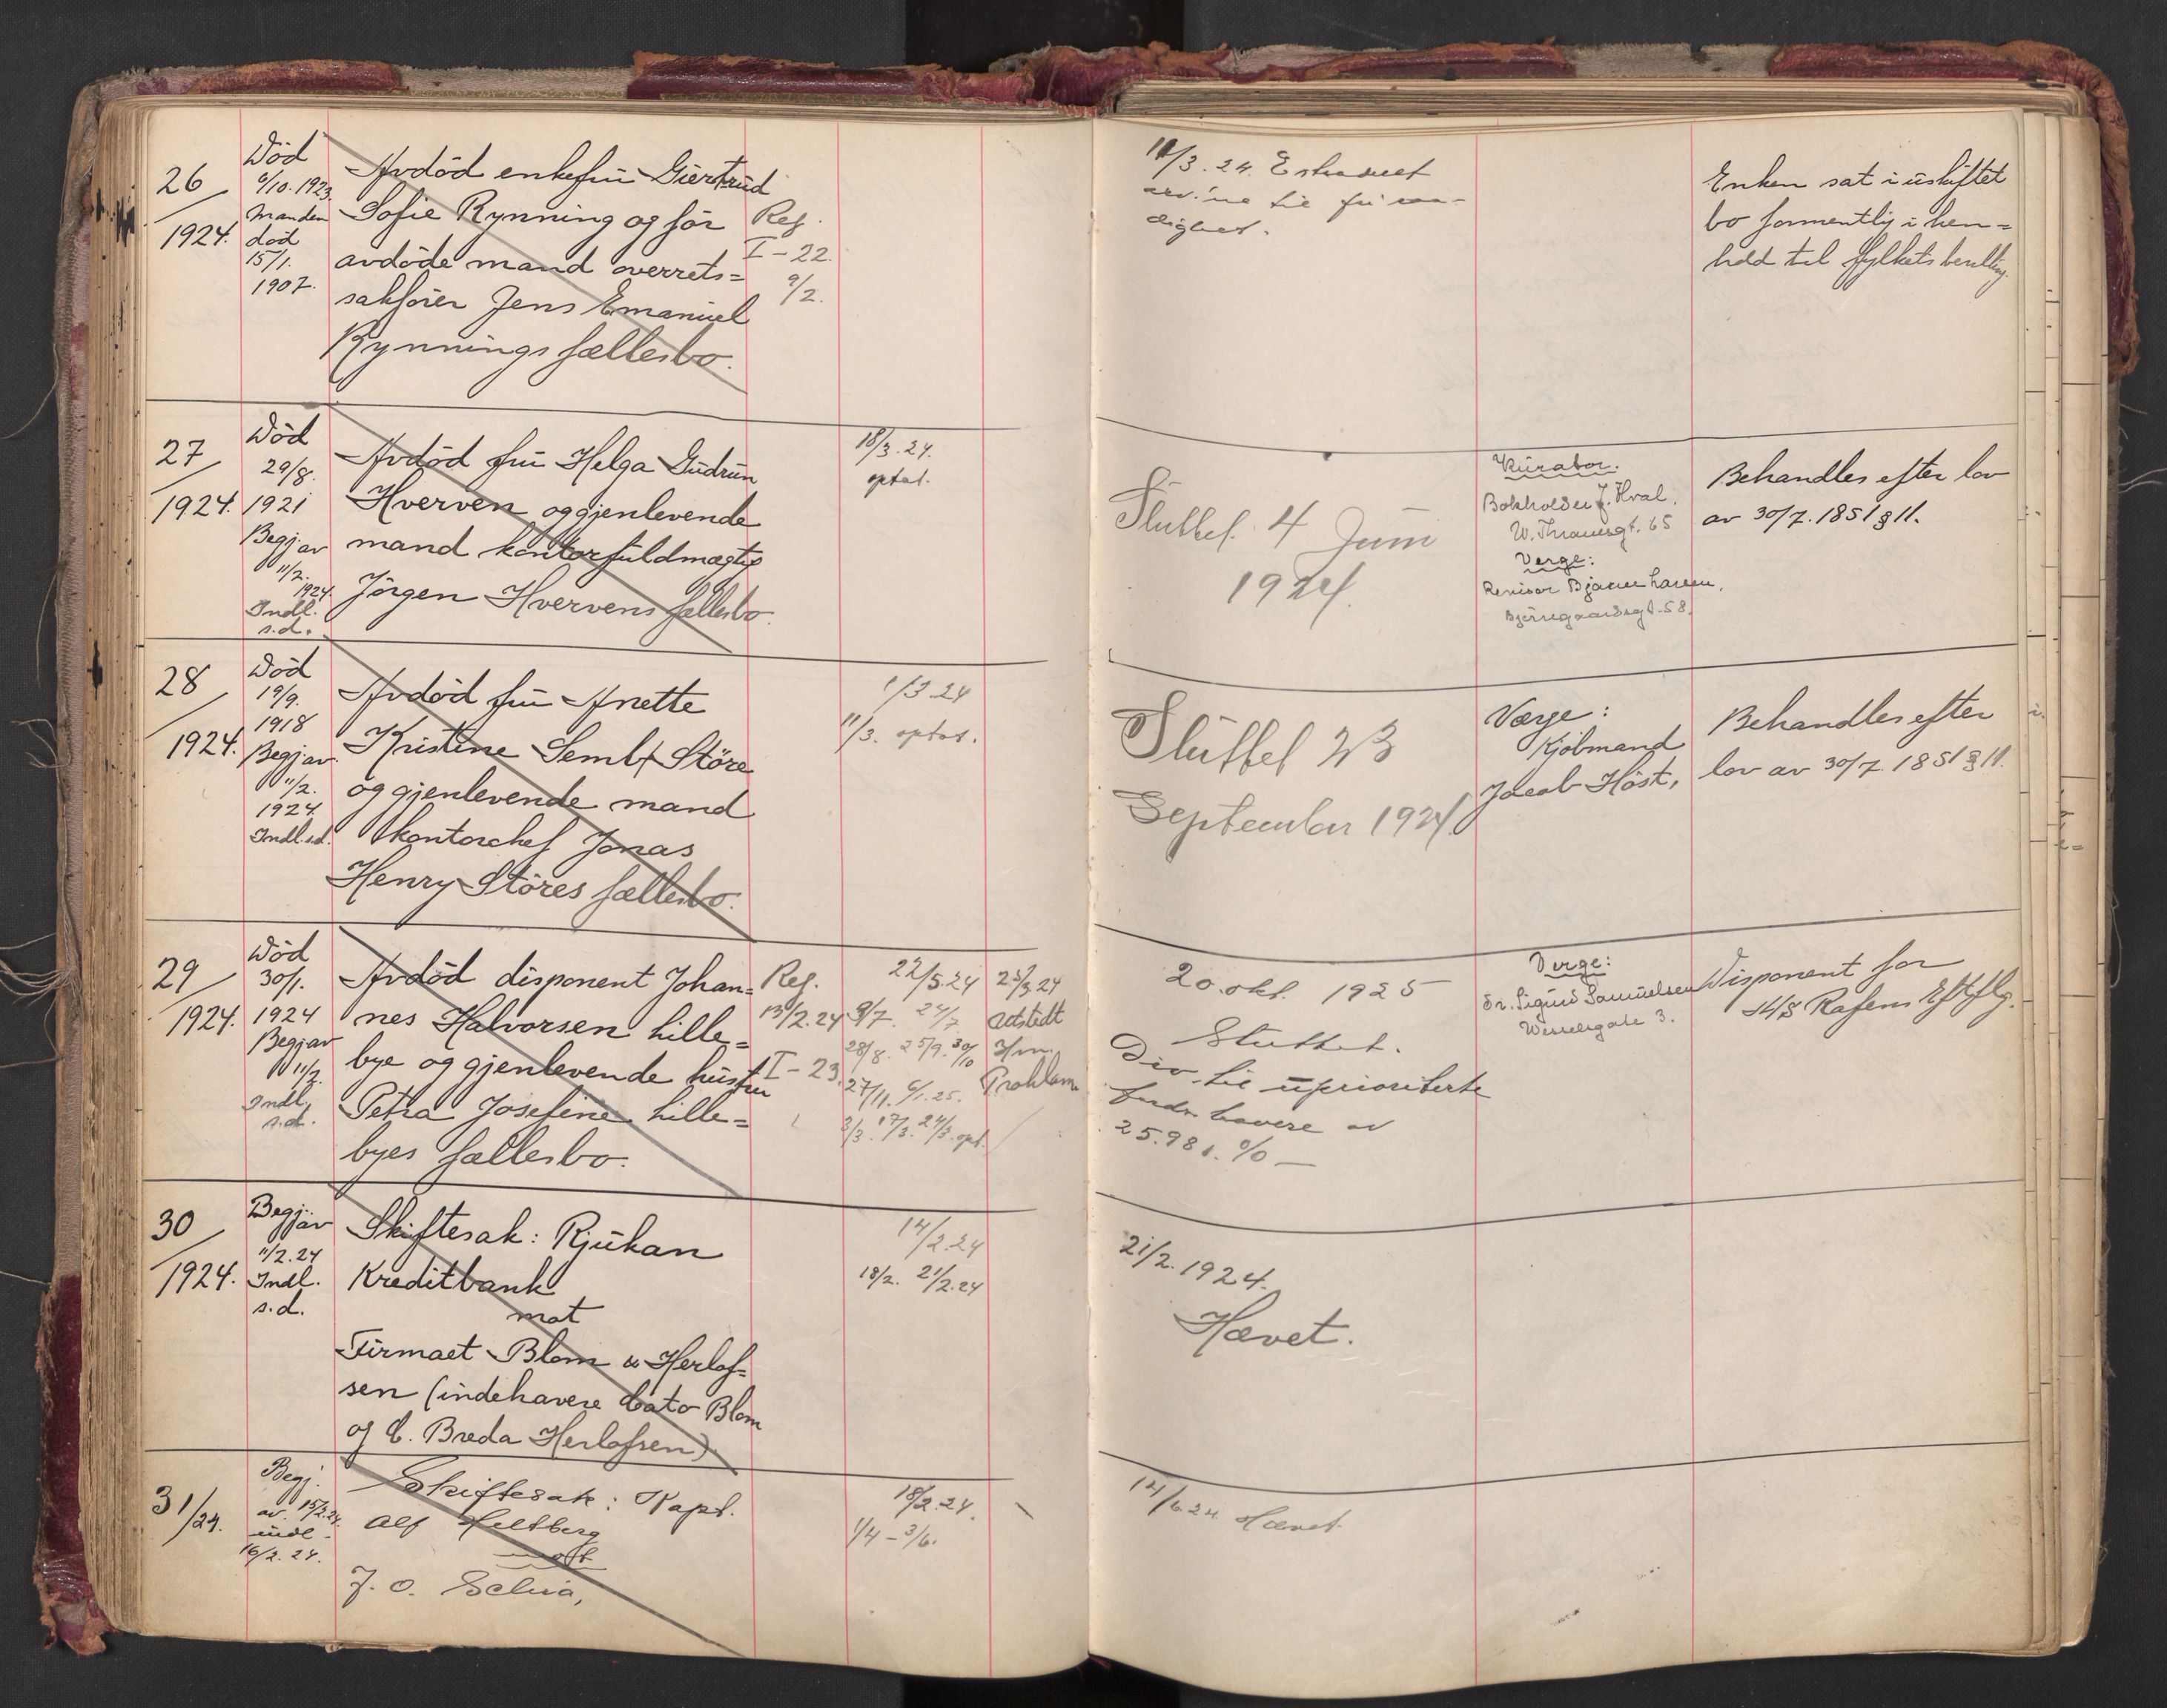 26
1924.
Död
6/10.1923.
Manden
död
15/1.
1907.
Avdöd enkefru Giertrud
Sofie Rynning og før
avdöde mand overrets=
sakfører Jens Emanuel
Rynnings fællesbo.
Reg.
I-22.
9/2.
11/3.24. Extraderet
til fri raa-
dighet.
Enken sat i uskiftet
bo formentlig i hen=
hold til fylkets bevilling.
27
1924.
Död
29/8.
1921
Begj. av
11/2.
1924.
Indl.
s.d.
Avdöd fru Helga Gudrun
Hverven og gjenlevende
mand kontorfuldmægtig
Jörgen Hvervens fællesbo.
18/3.24.
optat.
Sluttet. 4 Juni
1924.
Kurator.
Bokholder J. Hval.
W. Thranesgt. 65
Verge:
Revisor Bjarne Larsen,
Bjerregaardsgt. 58.
Behandles efter lov
av 30/7.1851 § 11.
28
1924.
Död
19/9.
1918
Begj av
11/2.
1924.
Indl. s.d.
Avdöd fru Anette
Kristine Sembs Störe
og gjenlevende mand
kontorchef Jonas
Henry Störes fællesbo.
1/3.24
11/3. optat.
Sluttet 23
September 1924.
Værge:
Kjöbmand
Jacob Höst,
Behandles efter
lov av 30/7.1851 § 11.
29
1924.
Död
30/1.
1924
Begj av
11/2.
Indl.
s.d.
Avdöd disponent Johan=
nes Halvorsen Lille=
bye og gjenlevende hustru
Petra Josefine Lille=
byes fællesbo.
Reg.
13/2.24
I-23.
22/5.24
8/7. 24/7.
28/8. 25/9. 30/10
27/11. 6/1.25.
3/3. 17/3. 24/3. opt.
25/3.24
Utstedt
Proklama
20. okt. 1925
Sluttet.
Div. til uprioriterte
fordr. havere av
25.981. %
Verge:
Sr. Sigurd Samuelsen
Wesselsgate 3.
Disponent for
A/S Rafens Eftflg.
30
1924.
Begj. av
11/2.24
Indl.
s.d.
Skiftesak: Rjukan
Kreditbank
mot
Firmaet Blom & Herlof=
sen (indehavere Cato Blom
og C. Breda Herlofsen).
14/2.24
18/2. 21/2.24
21/2.1924.
Hævet.
31/24.
Begj.
av. 15/2.24.
indl.
16/2.24.
Skiftesak: Kapt.
Alf Heltberg
mot
J. O. Selvia,
18/2.24.
1/4 - 3/6.
14/6 24. Hævet.